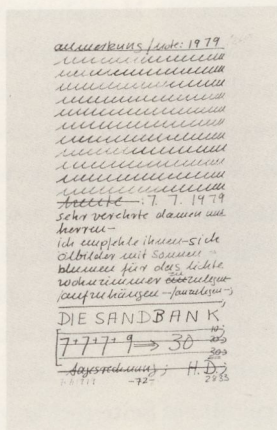 anmerkung/note: 1979
heute: 7. 7. 1979
sehr verehrte damen und
herren–
ich empfehle ihnen–sich
ölbilder mit sonnen–
blumen für das lichte
wohnzimmer
aufzuhängen–/anzulegen–;
DIE SANDBANK;
7+7+7+9 → 30
30
tagesrechnung; H.D.;
–72– 2835